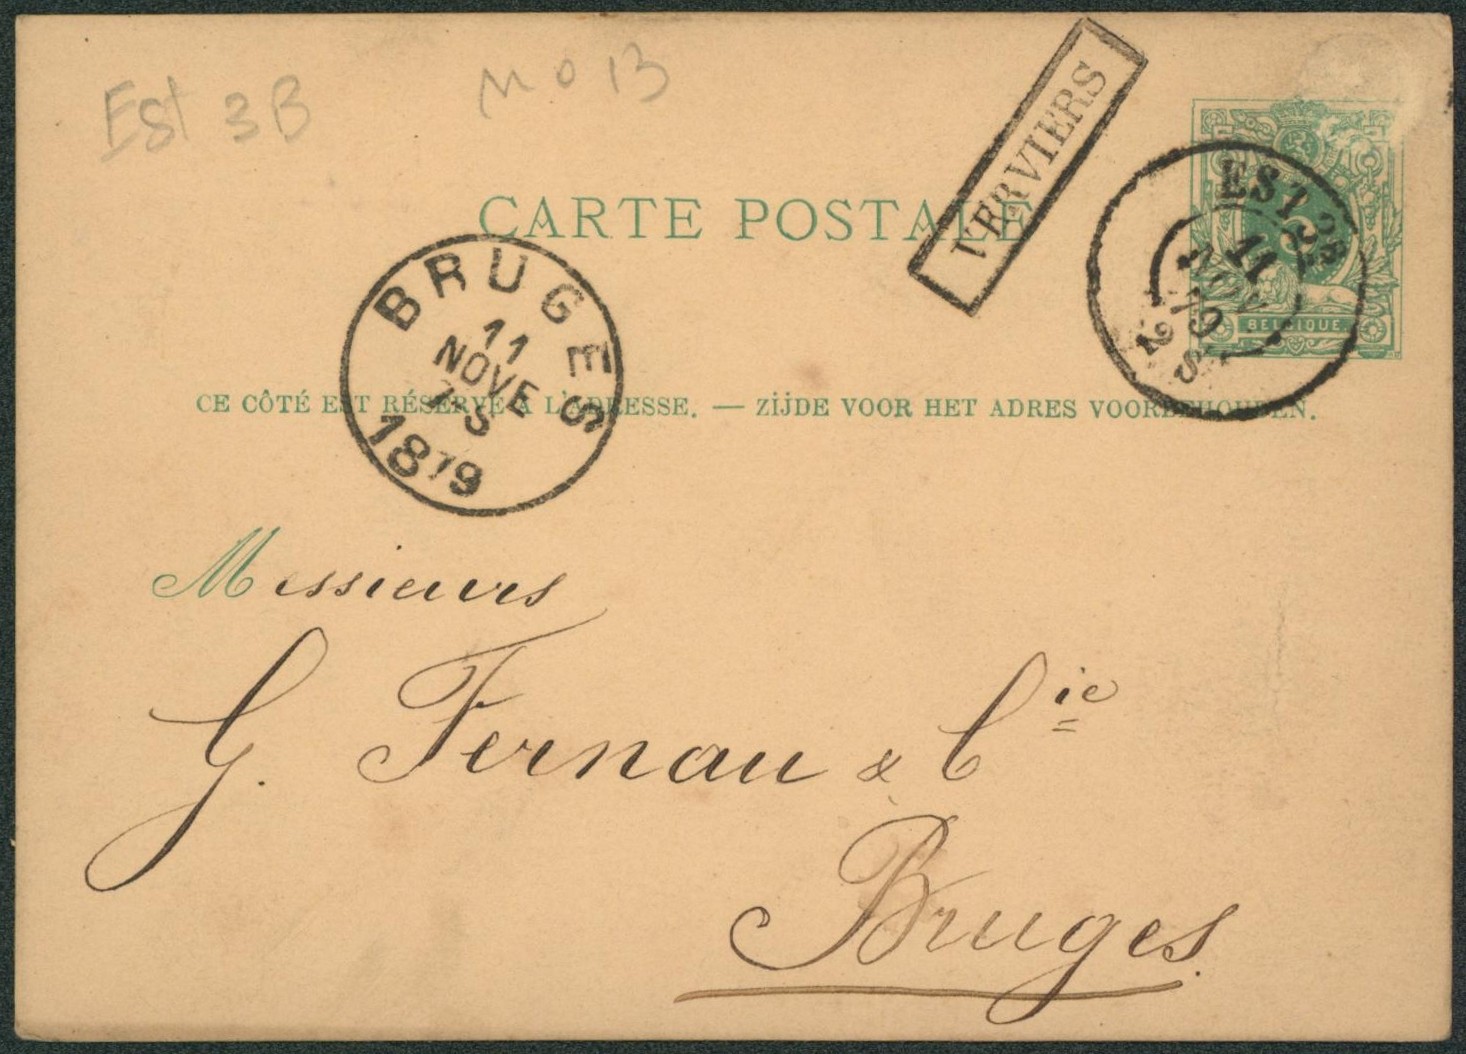 Est 3B
VERVIERS
EST 3B
11
NOV
79
2 S
CARTE POSTALE
BELGIQUE
BRUGES
11
NOVE
7 S
1879
CE CÔTÉ EST RÉSERVÉ À L'ADRESSE. — ZIJDE VOOR HET ADRES VOORBEHOUDEN.
Messieurs
G. Fernau & Cie
Bruges.